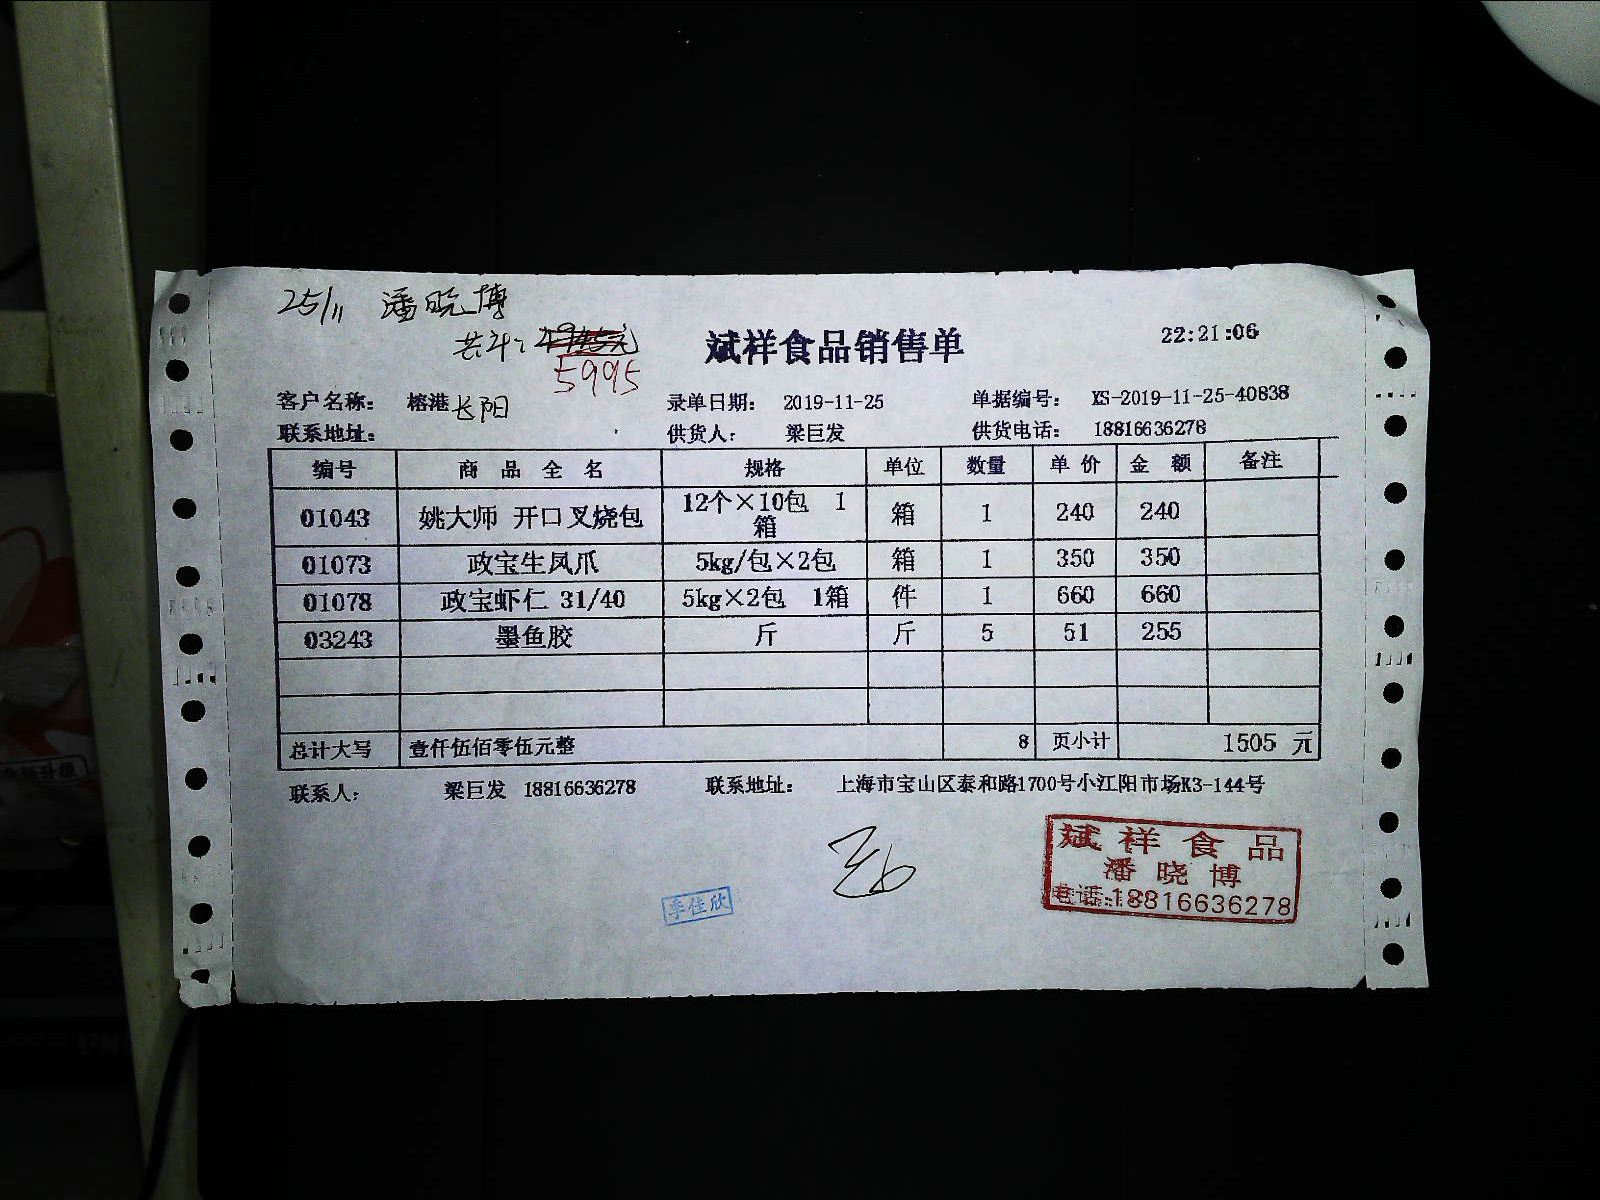 25/11 潘晓博
共计:
5995
斌祥食品销售单
22:21:06
客户名称： 榕港长阳 录单日期： 2019-11-25 单据编号： XS-2019-11-25-40838
联系地址： 供货人： 梁巨发 供货电话： 18816636278
编号 商品全名 规格 单位 数量 单价 金额 备注
01043 姚大师 开口叉烧包 12个×10包 1箱 箱 1 240 240
01073 政宝生凤爪 5kg/包×2包 箱 1 350 350
01078 政宝虾仁 31/40 5kg×2包 1箱 件 1 660 660
03243 墨鱼胶 斤 斤 5 51 255
总计大写 壹仟伍佰零伍元整 8 页小计 1505 元
联系人： 梁巨发 18816636278 联系地址： 上海市宝山区泰和路1700号小江阳市场K3-144号
斌祥食品
潘晓博
电话:18816636278
季佳欣